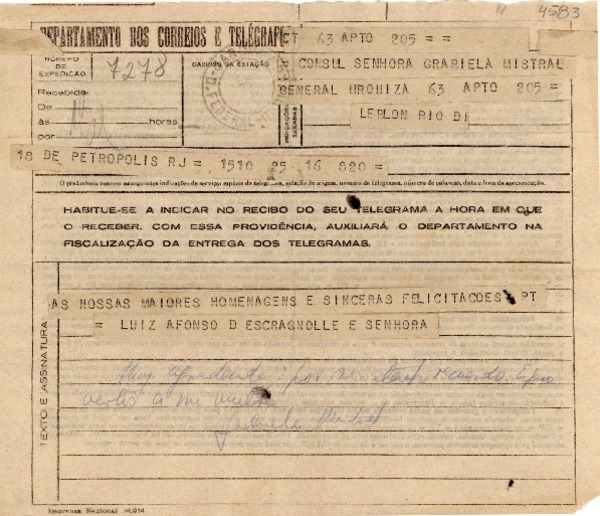 4583
DEPARTAMENTO DOS CORREIOS E TELÉGRAF
CT 63 APTO 205 = =
NÚMERO DE EXPEDIÇÃO
7278
CARIMBO DA ESTAÇÃO
CONSUL SENHORA GRABIELA MISTRAL
GENERAL URQUIZA 63 APTO 205 =
LEBLON RIO DF
Recebido:
De
às horas
por
INDICAÇÕES TAXADAS
18 DE PETROPOLIS RJ = 1510 25 16 820 =
O preâmbulo contém as seguintes indicações de serviço: espécie do telegrama, estação de origem, número do telegrama, número de palavras, data e hora da apresentação.
HABITUE-SE A INDICAR NO RECIBO DO SEU TELEGRAMA A HORA EM QUE
O RECEBER. COM ESSA PROVIDÊNCIA, AUXILIARÁ O DEPARTAMENTO NA
FISCALIZAÇÃO DA ENTREGA DOS TELEGRAMAS.
TEXTO E ASSINATURA
AS NOSSAS MAIORES HOMENAGENS E SINCERAS FELICITACOES PT
= LUIZ AFONSO D ESCRAGNOLLE E SENHORA
Muy agradecida por su recuerdo. Espero
verlos a mi
Gabriela Mistral
Imprensa Nacional